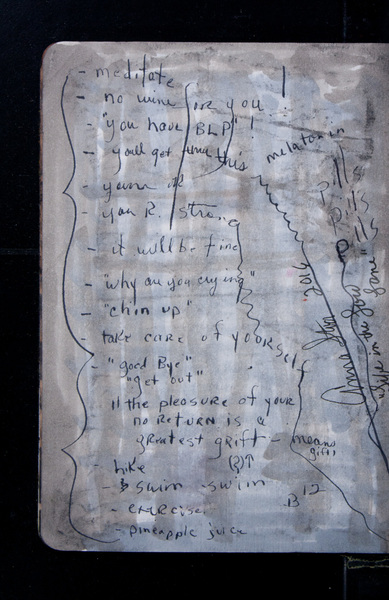 - meditate
- no wine for you
- "you have BLP"!
- you'll get thru this
- you R. strong
- it will be fine
- "why are you crying"
- "chin up"
- take care of yourself
- "good Bye"
"get out"
the pleasure of your
no RETURN is a
gReatest grift - means
gift
- hike
- swim - swim
- exercise
B 12
- pineapple juice
melatonin
Pills
Pills
Pills
"life in the Low Lane"